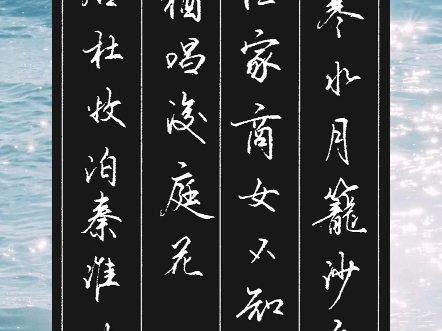 寒水月籠沙
家商女不知
猶唱後庭花
杜牧泊秦淮